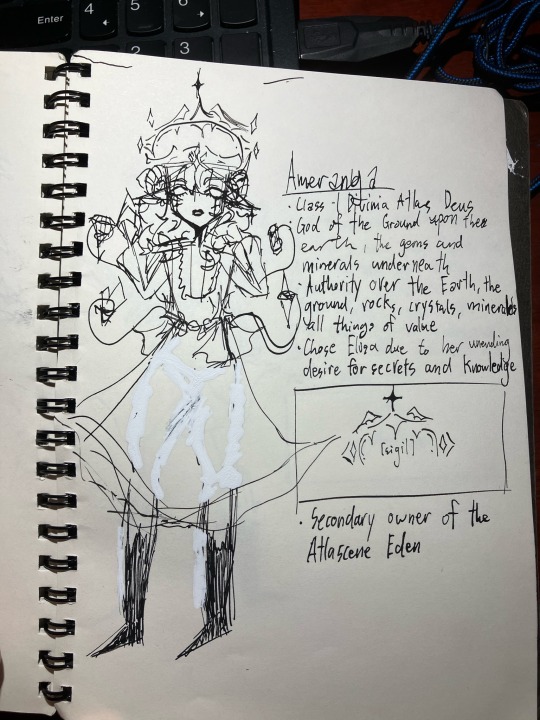 Enter
4
5
6
2
3
Ameranda
• Class - Divinia Atlas Deus
• God of the Ground upon thee
earth, the gems and
minerals underneath
• Authority over the Earth, the
ground, rocks, crystals, minerals
all things of value
• Chose Elosa due to her unending
desire for secrets and knowledge
[sigil]
• Secondary owner of the
Atlascene Eden